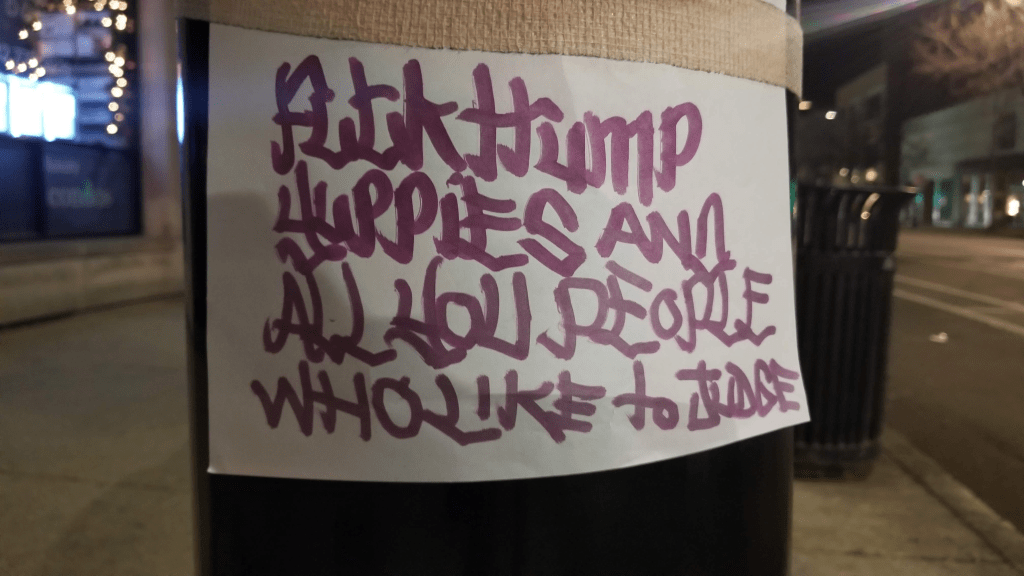 FUCK TRUMP
YUPPIES AND
ALL YOU PEOPLE
WHO LIKE to JUDGE